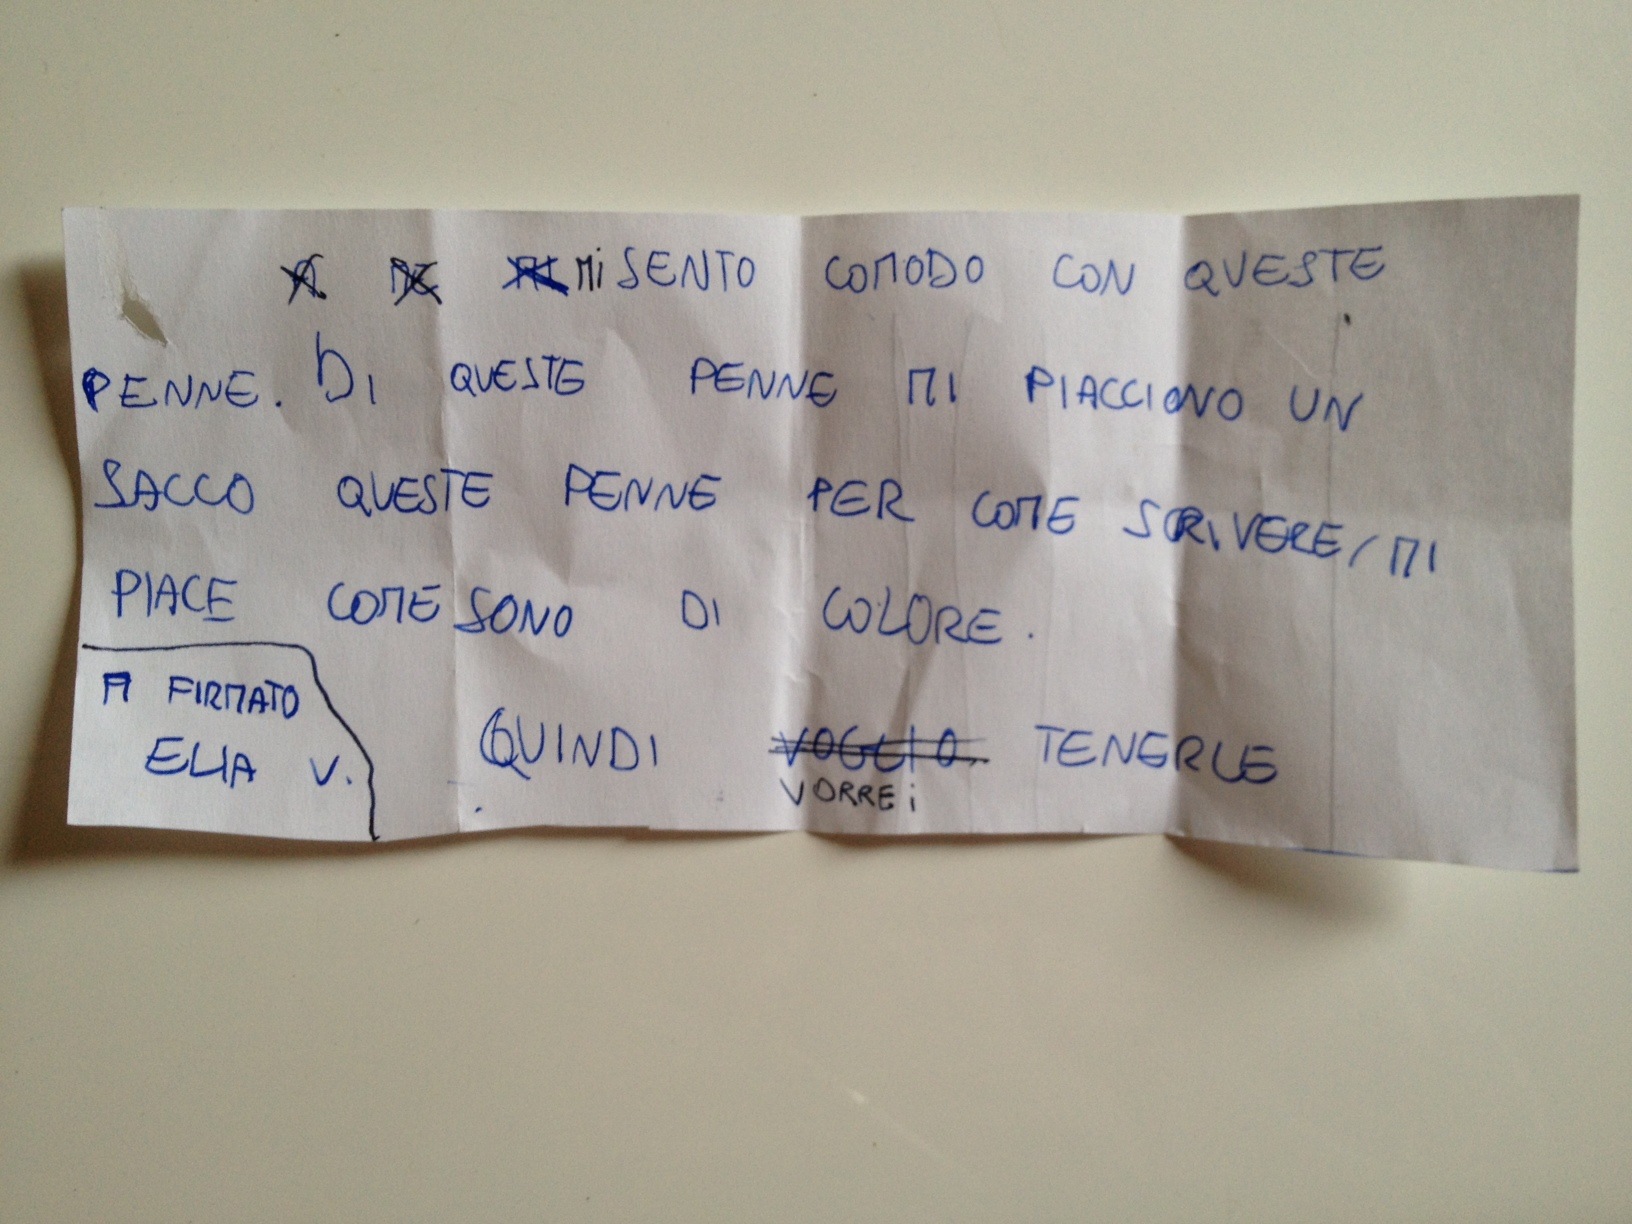 A ME MI Mi SENTO COMODO CON QUESTE
PENNE. DI QUESTE PENNE MI PIACCIONO UN
SACCO QUESTE PENNE PER COME SCRIVERE, MI
PIACE COME SONO DI COLORE.
A FIRMATO
ELIA V.
QUINDI VOGLIO TENERLE
VORREi